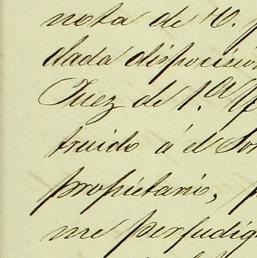 nota de V. 
dada disposición
Juez de 1.ª
truido á el
propietario,
me perjudiq